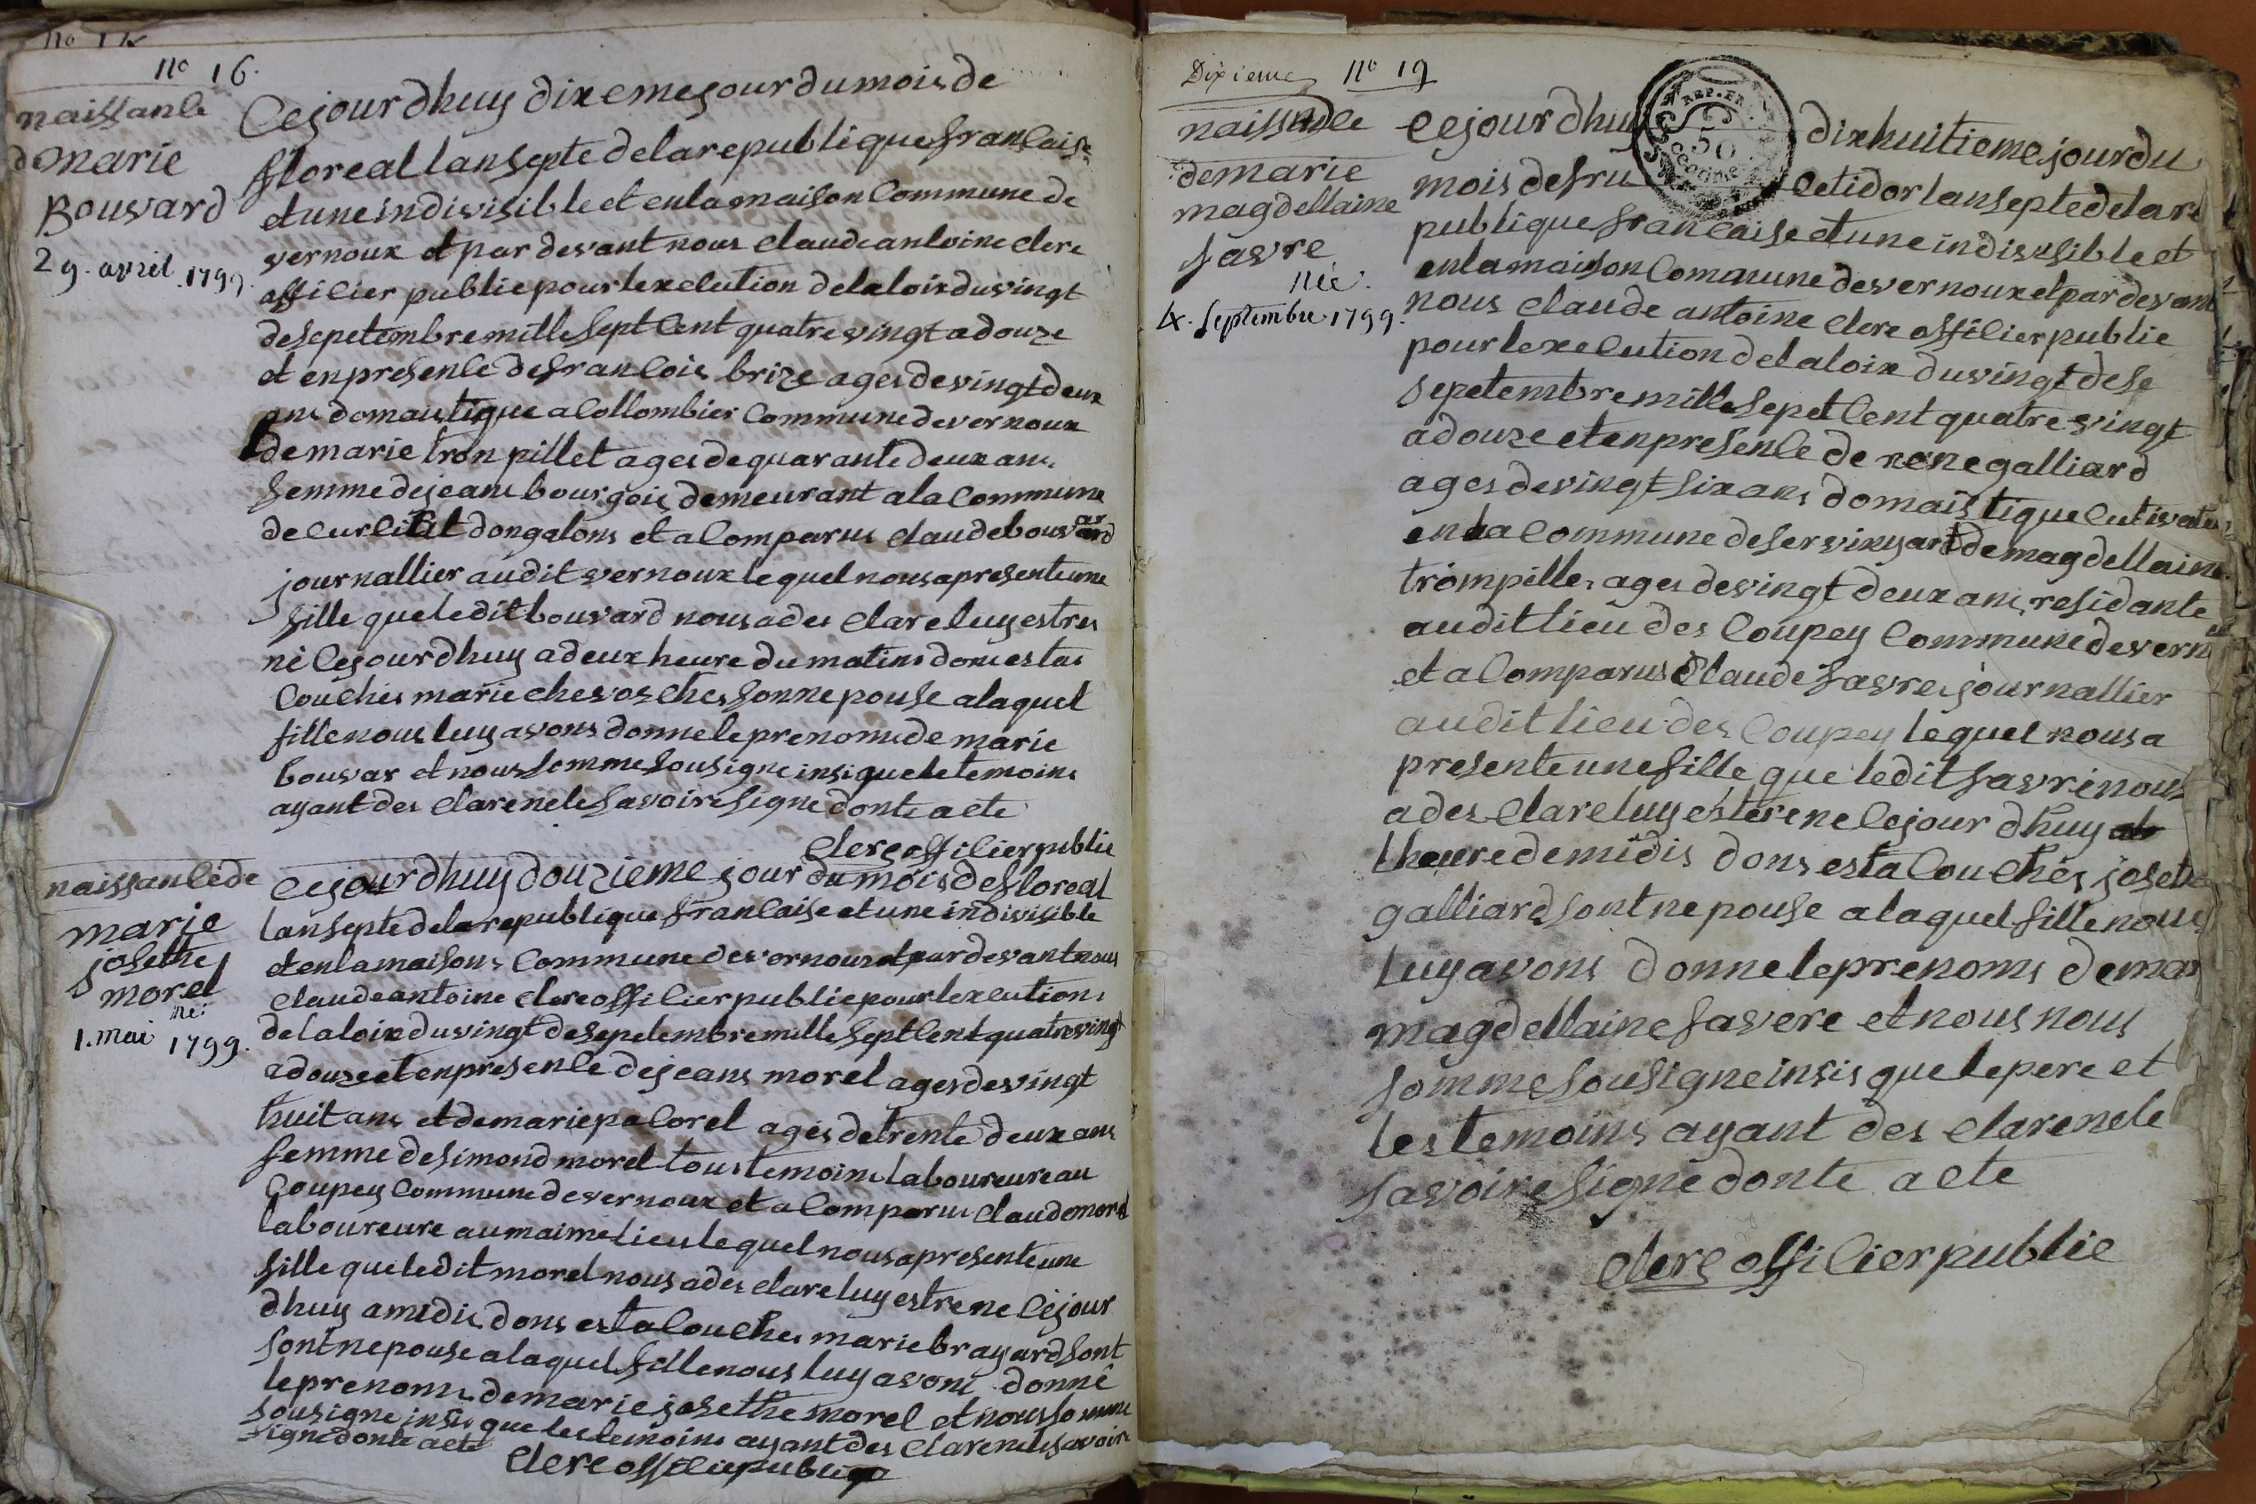 no 16.
naissanle
de marie
Bouvard
29. avril 1799.
Cejour dhuy dixeme jour du mois de
floreal lan septe dela republique franlaise
et une indivisible et en la maison Commune de
vernoux et par devant nous Claude antoine Clere
offilier publie pour lexelution dela loix du vingt
de sepetembre mille sept Cent quatre vingt a douze
et en presenle de franlois brize ages de vingt deux
ans domaistique a Collombier Commune de vernoux
de marie tronpillet ages de quarante deux ans
femme de jeans bourgois demeurant a la Commune
de Curlitat dongalons et a Comparus Claude bouvard
journallier audit vernoux le quel nous a presente une
fille que le dit bouvard nous a des Clare luy estres
né Cejour dhuy a deux heure du matins dons esta
Couches marie chevos ches sonne pouse a la quel
fille nous luy avons donne le prenoms de marie
bouvar et nous somme sousigne insi que le temoins
ayant des Clare ne le savoire signe donte a ete
Clere offilier publie
naissanle de
marie
josethe
morel
née
1. mai 1799.
Cejour dhuy douzieme jour du mois de floreal
lan septe dela republique franlaise et une indivisible
et en la maisons Commune de vernoux et par devant nous
Claude antoine Clere offilier publie pour lexelution
de la loix du vingt de sepetembre mille sept Cent quatre vingt
a douze et en presenle de jeans morel ages de vingt
huit ans et de marie palorel ages de trente deux ans
femme de simond morel tous temoins laboureure au
Coupey Commune de vernoux et a Comparus Claude morel
laboureure au maime lieu le quel nous a presente une
fille que le dit morel nous a des Clare luy estre ne Cejour
dhuy a midis dons esta Couches marie brayard sont
sont ne pouse a la quel fille nous luy avons donné
le prenoms de marie josethe morel et nous somme
sousigne insi que les temoins ayant des Clare ne le savoire
signe donte a ete
Clere offilie publie
Dixieme no 19
naissanle
de marie
magdellaine
favre
née.
4. septembre 1799.
Cejour dhuy dix huitieme jour du
REP. FR.
50
mois de fru Cetidor lan septe dela re
publique francaise et une indivisible et
en la maison Commune de vernoux et par devant
nous Claude antoine Clere offilier publie
pour lexelution de la loix du vingt de se
sepetembre mille sepet Cent quatre vingt
a douze et en presenle de rene galliard
ages de vingt six ans domaistique Cutivateu
en la Commune de servinyard de magdellaine
trompille ages de vingt deux ans residante
audit lieu des Coupey Commune de vern
et a Comparus Claude favre journallier
audit lieu des Coupey le quel nous a
presente une fille que le dit favre nous
a des Clare luy estere ne Cejour dhuy
lheure de midis dons esta Couches josette
galliard sont ne pouse a la quel fille nous
luy avons donne le prenoms de mar
magdellaine favere et nous nous
somme sousigne insis que le pere et
les temoins ayant des Clare ne le
savoire signe donte a ete
Clere offilier publie